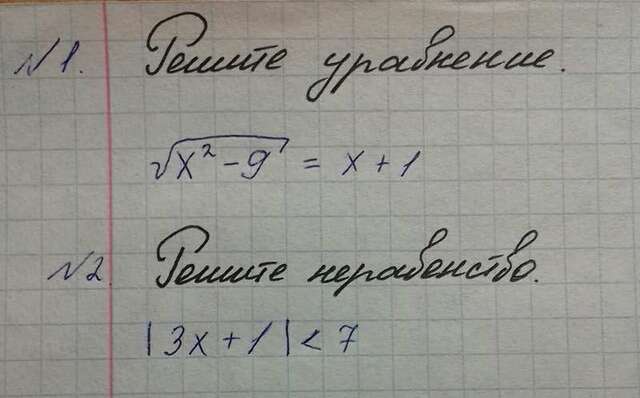 №1. Решите уравнение.
√(x² - 9) = x + 1
№2. Решите неравенство.
|3x + 1| < 7